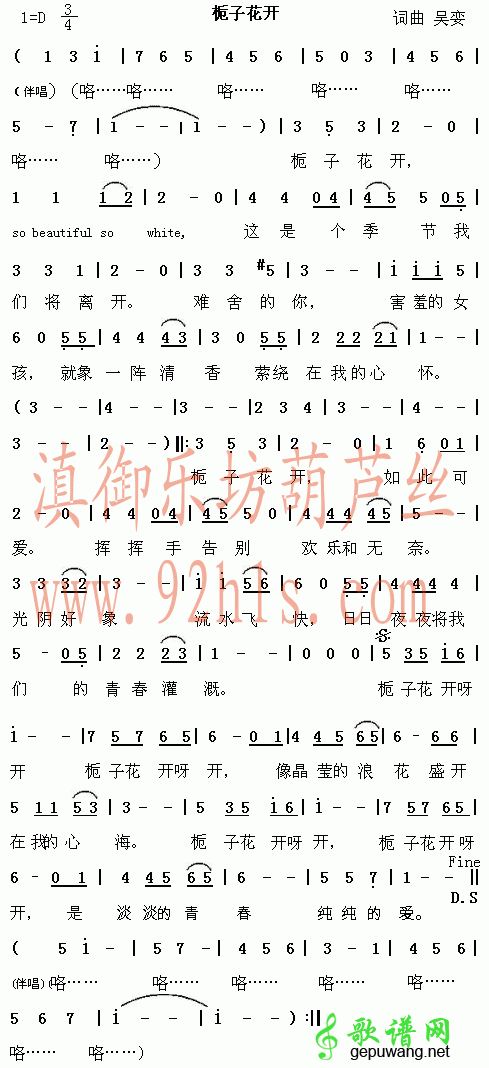 栀子花开
1=D 3/4
词曲 吴娈
( 1 3 i | 7 6 5 | 4 5 6 | 5 0 3 | 4 5 6 |
(伴唱) (咯……咯…… 咯…… 咯…… 咯……
5 - 7 | i - - | i - - ) | 3 5 3 | 2 - 0 |
咯…… 咯……) 栀 子 花 开,
1 1 1 2 | 2 - 0 | 4 4 0 4 | 4 5 5 0 5 |
so beautiful so white, 这 是 个 季 节 我
3 3 1 | 2 - 0 | 3 3 #5 | 3 - - | i i i 5 |
们 将 离 开。 难 舍 的 你, 害 羞的 女
6 0 5 5 | 4 4 4 3 | 3 0 5 5 | 2 2 2 2 1 | 1 - - |
孩, 就象 一 阵 清 香 萦绕 在 我的 心 怀。
( 3 - - | 4 - - | 3 - - | 2 3 4 | 3 - - | 4 - - |
3 - - | 2 - - ) ‖: 3 5 3 | 2 - 0 | 1 6 0 1 |
栀 子 花 开, 如 此 可
2 - 0 | 4 4 0 4 | 4 5 5 0 | 4 4 4 4 5 | 5 - - |
爱。 挥 挥 手 告 别 欢 乐和 无 奈。
3 3 3 2 | 3 - - | i i 5 6 | 6 0 5 5 | 4 4 4 4 |
光 阴 好 象 流 水 飞 快, 日日 夜 夜将我
5 - 0 5 | 2 2 2 3 | 1 - - | 0 0 0 | 5 3 5 i 6 |
们 的 青 春 灌 溉。 栀 子花 开呀
i - - | 7 5 7 6 5 | 6 - 0 1 | 4 4 5 6 5 | 6 - 6 6 |
开 栀 子花 开呀 开, 像晶 莹的 浪 花 盛开
5 1 1 5 3 | 3 - - | 5 3 5 i 6 | i - - | 7 5 7 6 5 |
在 我的 心 海。 栀 子花 开呀 开, 栀 子花 开呀
Fine
6 - 0 1 | 4 4 5 6 5 | 6 - - | 5 5 7 | 1 - - ‖
D.S
开, 是 淡 淡的 青 春 纯 纯 的 爱。
( 5 i - | 5 7 - | 4 5 6 | 3 - 1 | 4 5 6 |
(伴唱) (咯…… 咯…… 咯…… 咯…… 咯……
5 6 7 | i - - | i - - ) :‖
咯…… 咯……)
滇御乐坊葫芦丝
www.92hls.com
歌谱网
gepuwang.net